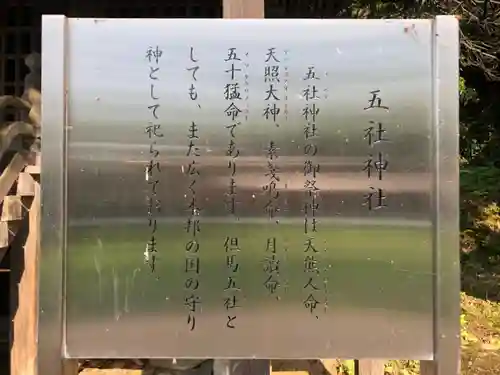 五社神社
五社神社の御祭神は天熊人命、
天照大神、素戔嗚命、月讀命、
五十猛命であります。但馬五社と
しても、また広く本邦の国の守り
神として祀られております。